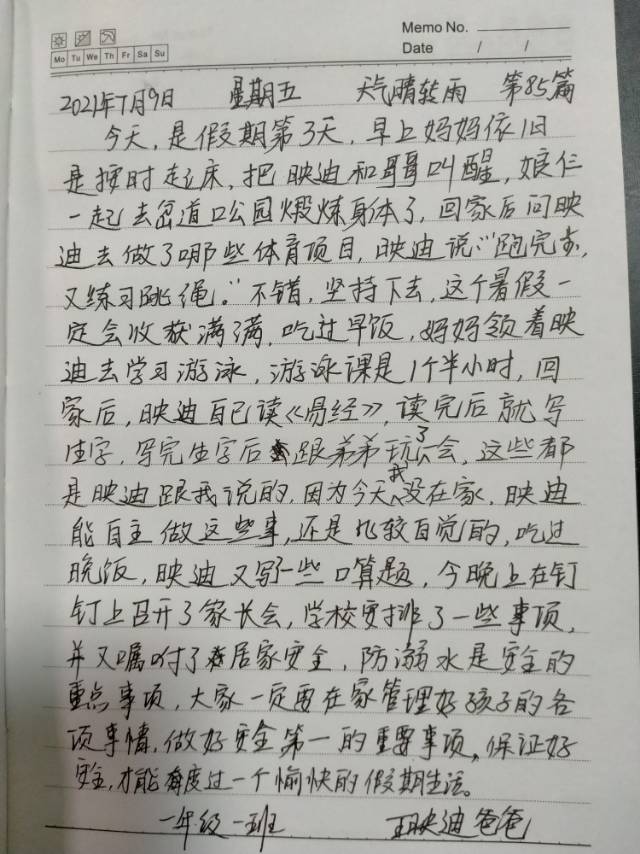 Memo No.
Mo Tu We Th Fr Sa Su
Date / /
2021年7月9日 星期五 天气晴转雨 第85篇
今天,是假期第3天,早上妈妈依旧
是按时起床,把映迪和哥哥叫醒,娘仨
一起去岔道口公园煅炼身体了,回家后问映
迪去做了哪些体育项目,映迪说:"跑完步,
又练习跳绳。"不错,坚持下去,这个暑假一
定会收获满满,吃过早饭,妈妈领着映
迪去学习游泳,游泳课是1个半小时,回
家后,映迪自已读《易经》,读完后就写
生字,写完生字后跟弟弟玩了会,这些都
是映迪跟我说的,因为今天我没在家,映迪
能自主做这些事,还是比较自觉的,吃过
晚饭,映迪又写一些口算题,今晚上在钉
钉上召开了家长会,学校安排了一些事项,
并又嘱咐了居家安全,防溺水是安全的
重点事项,大家一定要在家管理好孩子的各
项事情,做好安全第一的重要事项,保证好
安全,才能度过一个愉快的假期生活。
一年级一班 王映迪爸爸